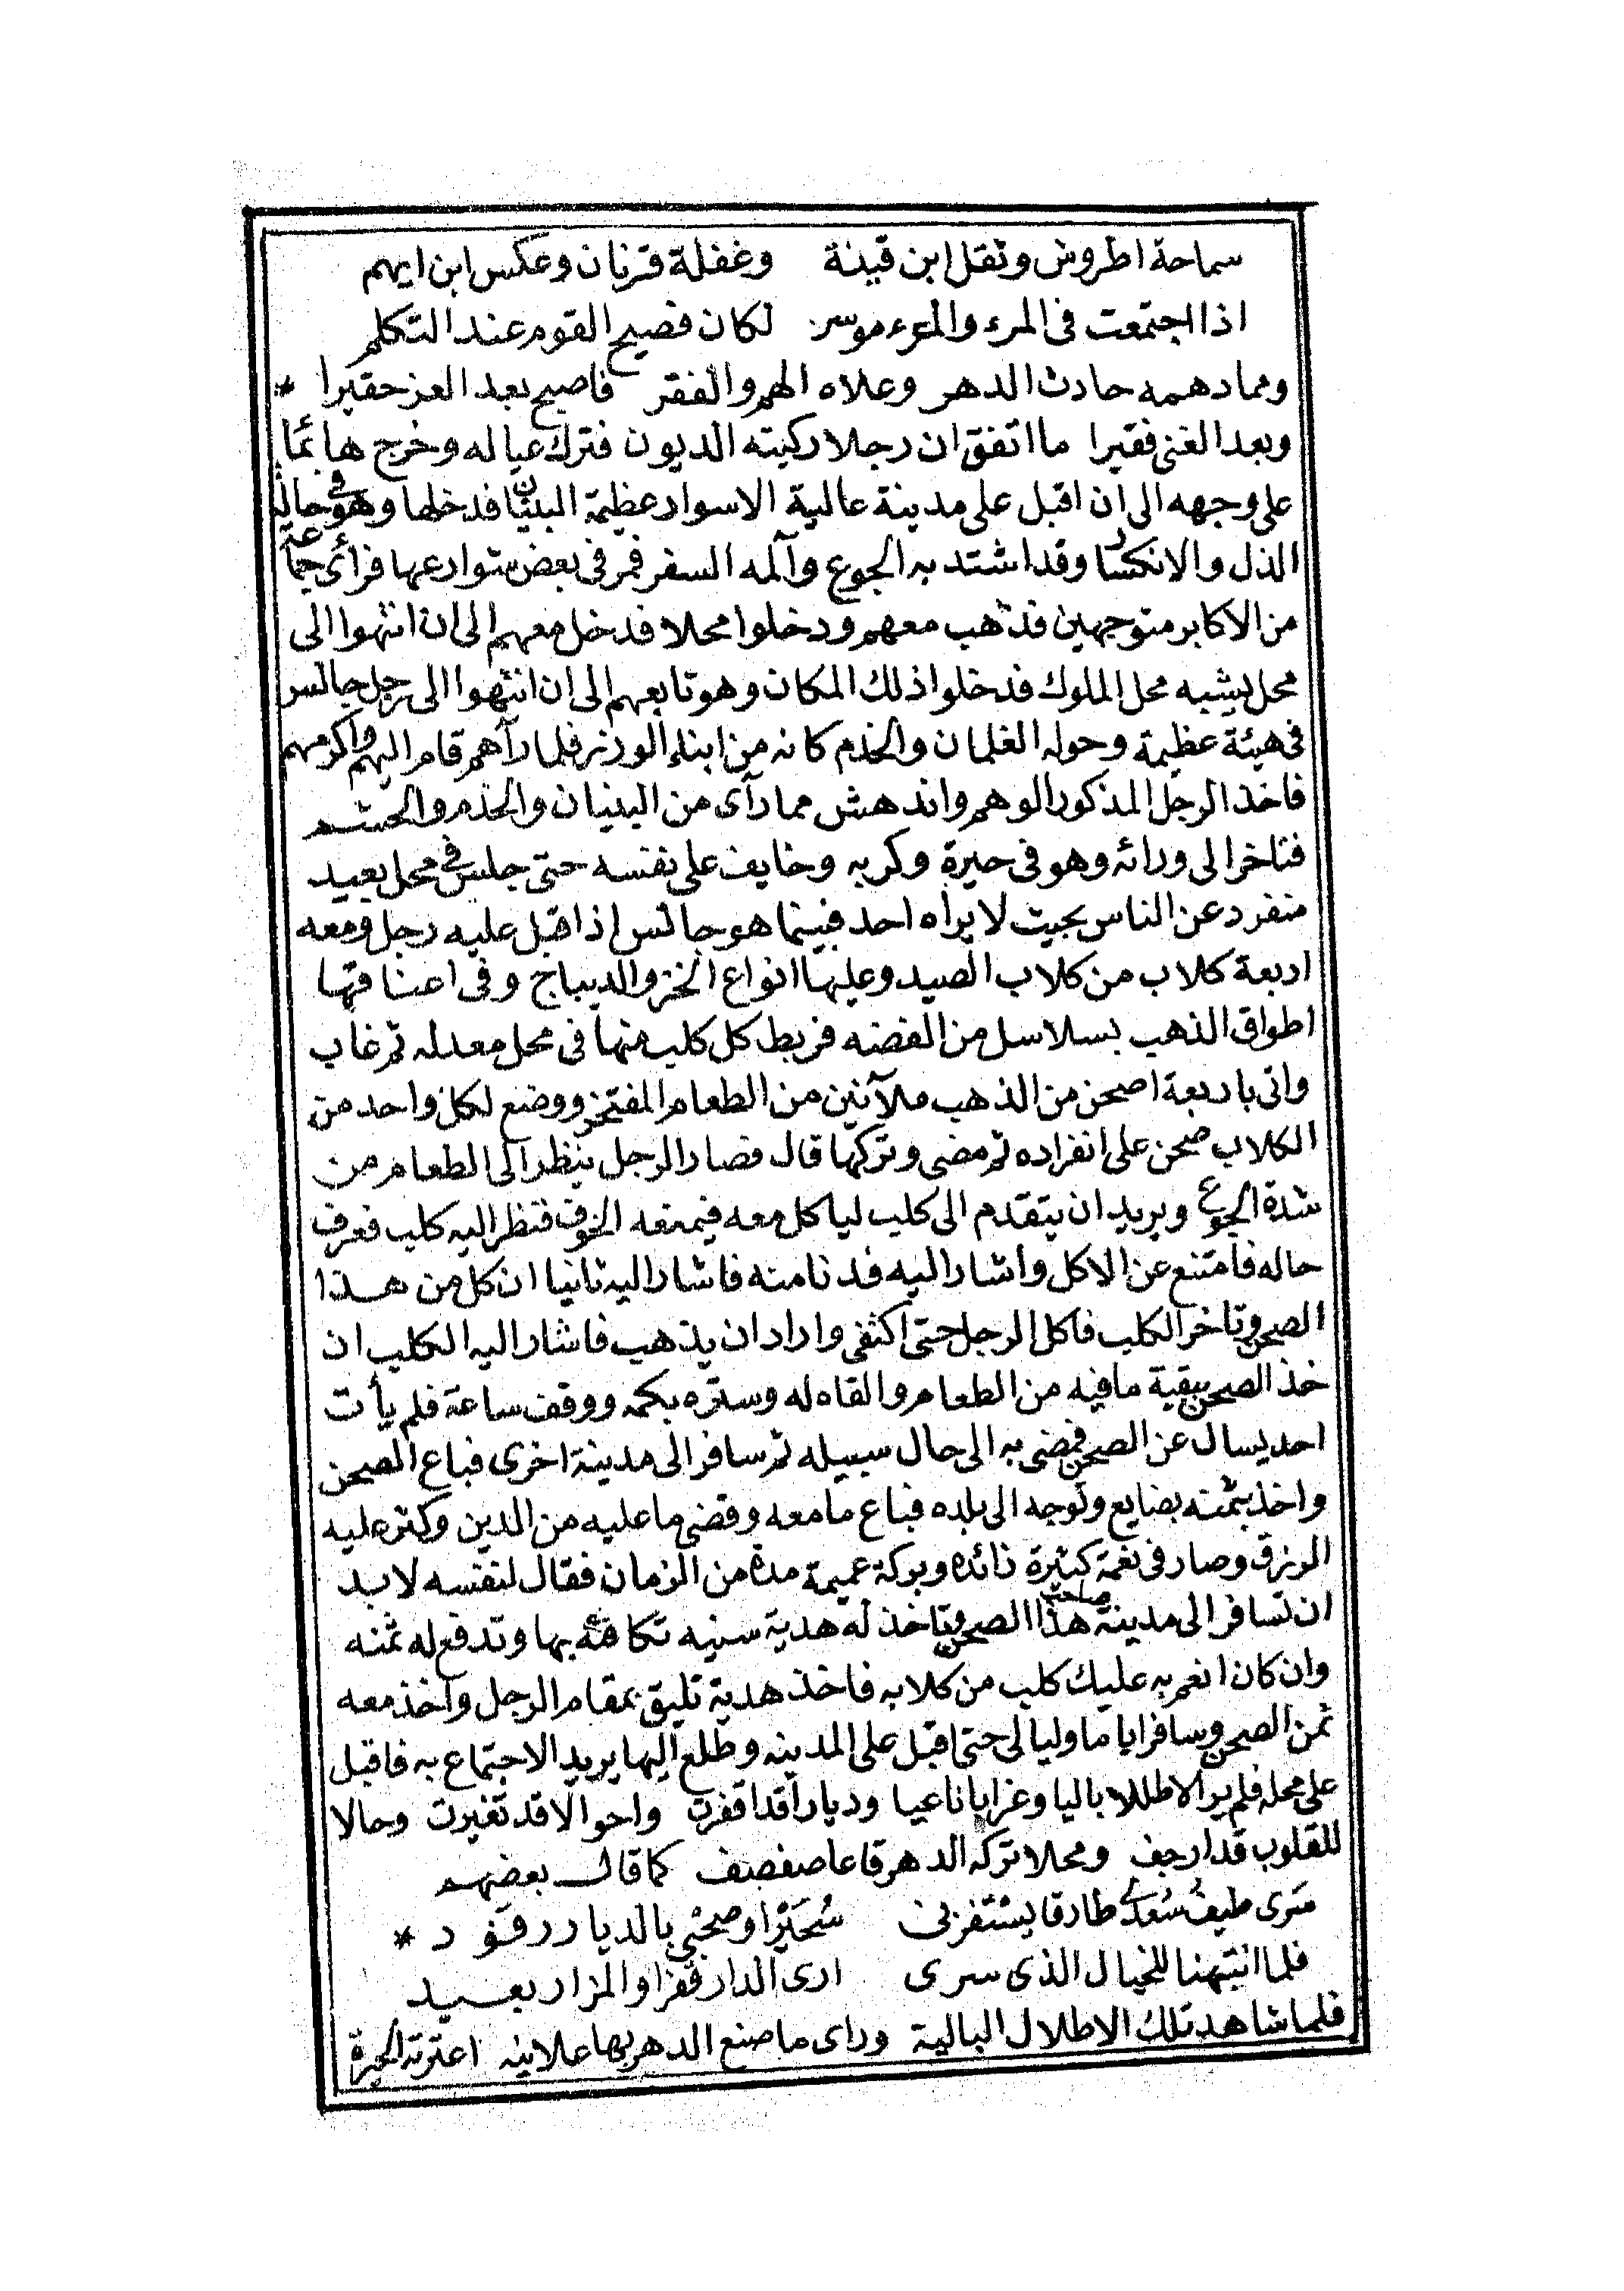 سماحة اطروش وثقل ابن قينة وغفلة قرنان وعكس ابن ايهم
اذا اجتمعت في المرء والمرء موسر لكان فصيح القوم عند التكلم
ومما دهمه حادث الدهر وعلاه الهم والفقر فاصبح بعد العز حقيرا *
وبعد الغنى فقيرا ما اتفق ان رجلا ركبته الديون فترك عياله وخرج هائما
على وجهه الى ان اقبل على مدينة عالية الاسوار عظيمة البنيان فدخلها وهو في حالة
الذل والانكسار وقد اشتد به الجوع وآلمه السفر فمر في بعض شوارعها فرأى جماعة
من الاكابر متوجهين فذهب معهم ودخلوا محلا فدخل معهم الى ان انتهوا الى
محل يشبه محل الملوك فدخلوا ذلك المكان وهو تابعهم الى ان انتهوا الى رجل جالس
في هيئة عظيمة وحوله الغلمان والخدم كانه من ابناء الوزر فلما رآهم قام اليهم واكرمهم
فاخذ الرجل المذكور الوهم واندهش مما رآى من البنيان والخدم والحشم
فتاخر الى ورائه وهو في حيرة وكربه وخايف على نفسه حتى جلس في محل بعيد
منفرد عن الناس بحيث لا يراه احد فبينما هو جالس اذ اقبل عليه رجل ومعه
اربعة كلاب من كلاب الصيد وعليها انواع الخز والديباج وفي اعناقها
اطواق الذهب بسلاسل من الفضه فربط كل كلب منها في محل معد له ثم غاب
واتى باربعة اصحن من الذهب ملآنين من الطعام المفتخر ووضع لكل واحد من
الكلاب صحن على انفراده ثم مضى وتركها قال فصار الرجل ينظر الى الطعام من
شدة الجوع ويريد ان يتقدم الى كلب لياكل معه فيمنعه الخوف فنظر اليه كلب فعرف
حاله فامتنع عن الاكل واشار اليه فدنا منه فاشار اليه ثانيا ان كل من هذا
الصحن وتاخر الكلب فاكل الرجل حتى اكتفى واراد ان يذهب فاشار اليه الكلب ان
خذ الصحن ببقية ما فيه من الطعام والقاه له وستره بكمه ووقف ساعة فلم يأت
احد يسال عن الصحن فمضى به الى حال سبيله ثم سافر الى مدينة اخرى فباع الصحن
واخذ بثمنه بضايع وتوجه الى بلده فباع ما معه وقضى ما عليه من الدين وكثر عليه
الرزق وصار في نعمة كثيرة زائده وبركة عميمة مدة من الزمان فقال لنفسه لابد
ان تسافر الى مدينة صاحب هذا الصحن وتاخذ له هدية سنيه تكافئه بها وتدفع له ثمنه
وان كان انعم به عليك كلب من كلابه فاخذ هدية تليق بمقام الرجل واخذ معه
ثمن الصحن وسافر اياما وليالى حتى اقبل على المدينه وطلع اليها يريد الاجتماع به فاقبل
على محله فلم ير الا طللا باليا وغرابا ناعيا وديارا قد اقفرت واحوالا قد تغيرت وحالا
للقلوب قد ارجف ومحلا تركه الدهر قاعا صفصف كما قال بعضهم
سَرى طيف سُعدى طارقا يستفزنى سُحَيْرًا وصحْبي بالديار رقود *
فلما انتبهنا للخيال الذي سرى ارى الدار قفرا والمزار بعيد
فلما شاهد تلك الاطلال البالية وراى ما صنع الدهر بها علانيه اعترته الحيرة